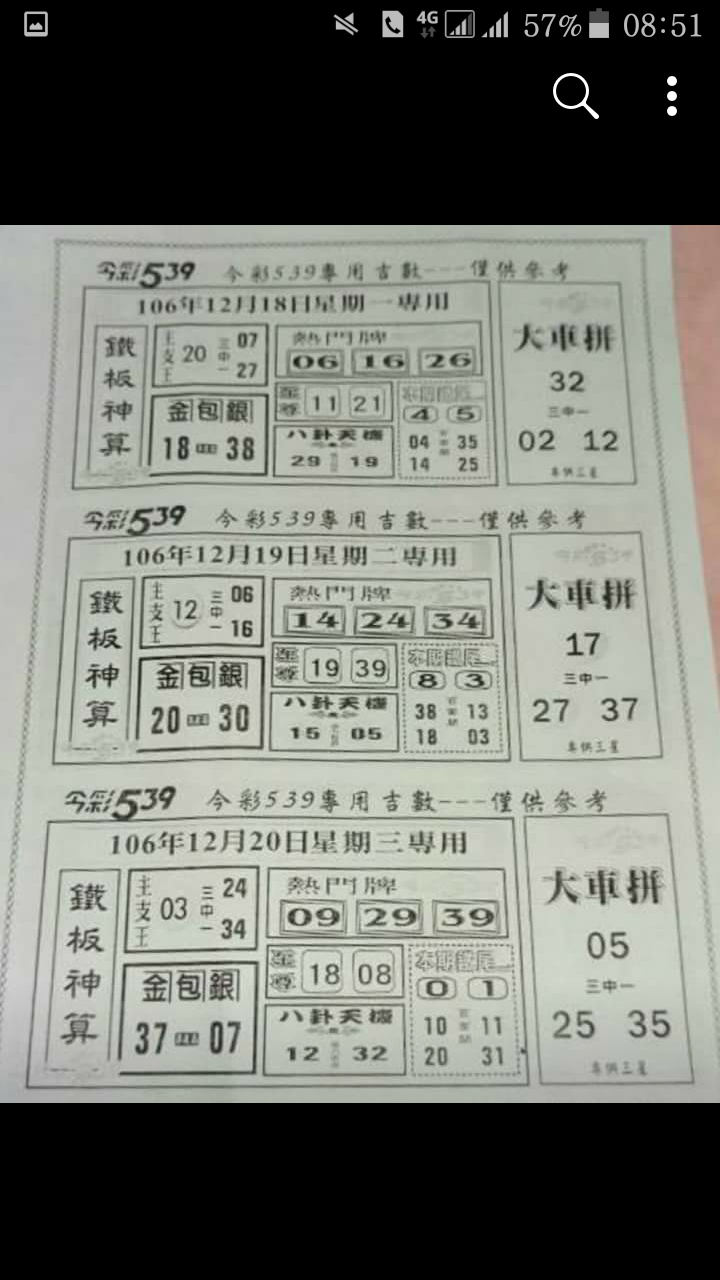 4G 57% 08:51
今彩539 今彩539專用吉數---僅供參考
106年12月18日星期一專用
鐵板神算
主支王 20 三中一 07 27
金包銀
18 38
熱門牌
06 16 26
至尊 11 21
八卦天機
29 19
本期鐵尾
4 5
04 35
14 25
大車拼
32
三中一
02 12
專供三星
今彩539 今彩539專用吉數---僅供參考
106年12月19日星期二專用
鐵板神算
主支王 12 三中一 06 16
金包銀
20 30
熱門牌
14 24 34
至尊 19 39
八卦天機
15 05
本期鐵尾
8 3
38 13
18 03
大車拼
17
三中一
27 37
專供三星
今彩539 今彩539專用吉數---僅供參考
106年12月20日星期三專用
鐵板神算
主支王 03 三中一 24 34
金包銀
37 07
熱門牌
09 29 39
至尊 18 08
八卦天機
12 32
本期鐵尾
0 1
10 11
20 31
大車拼
05
三中一
25 35
專供三星